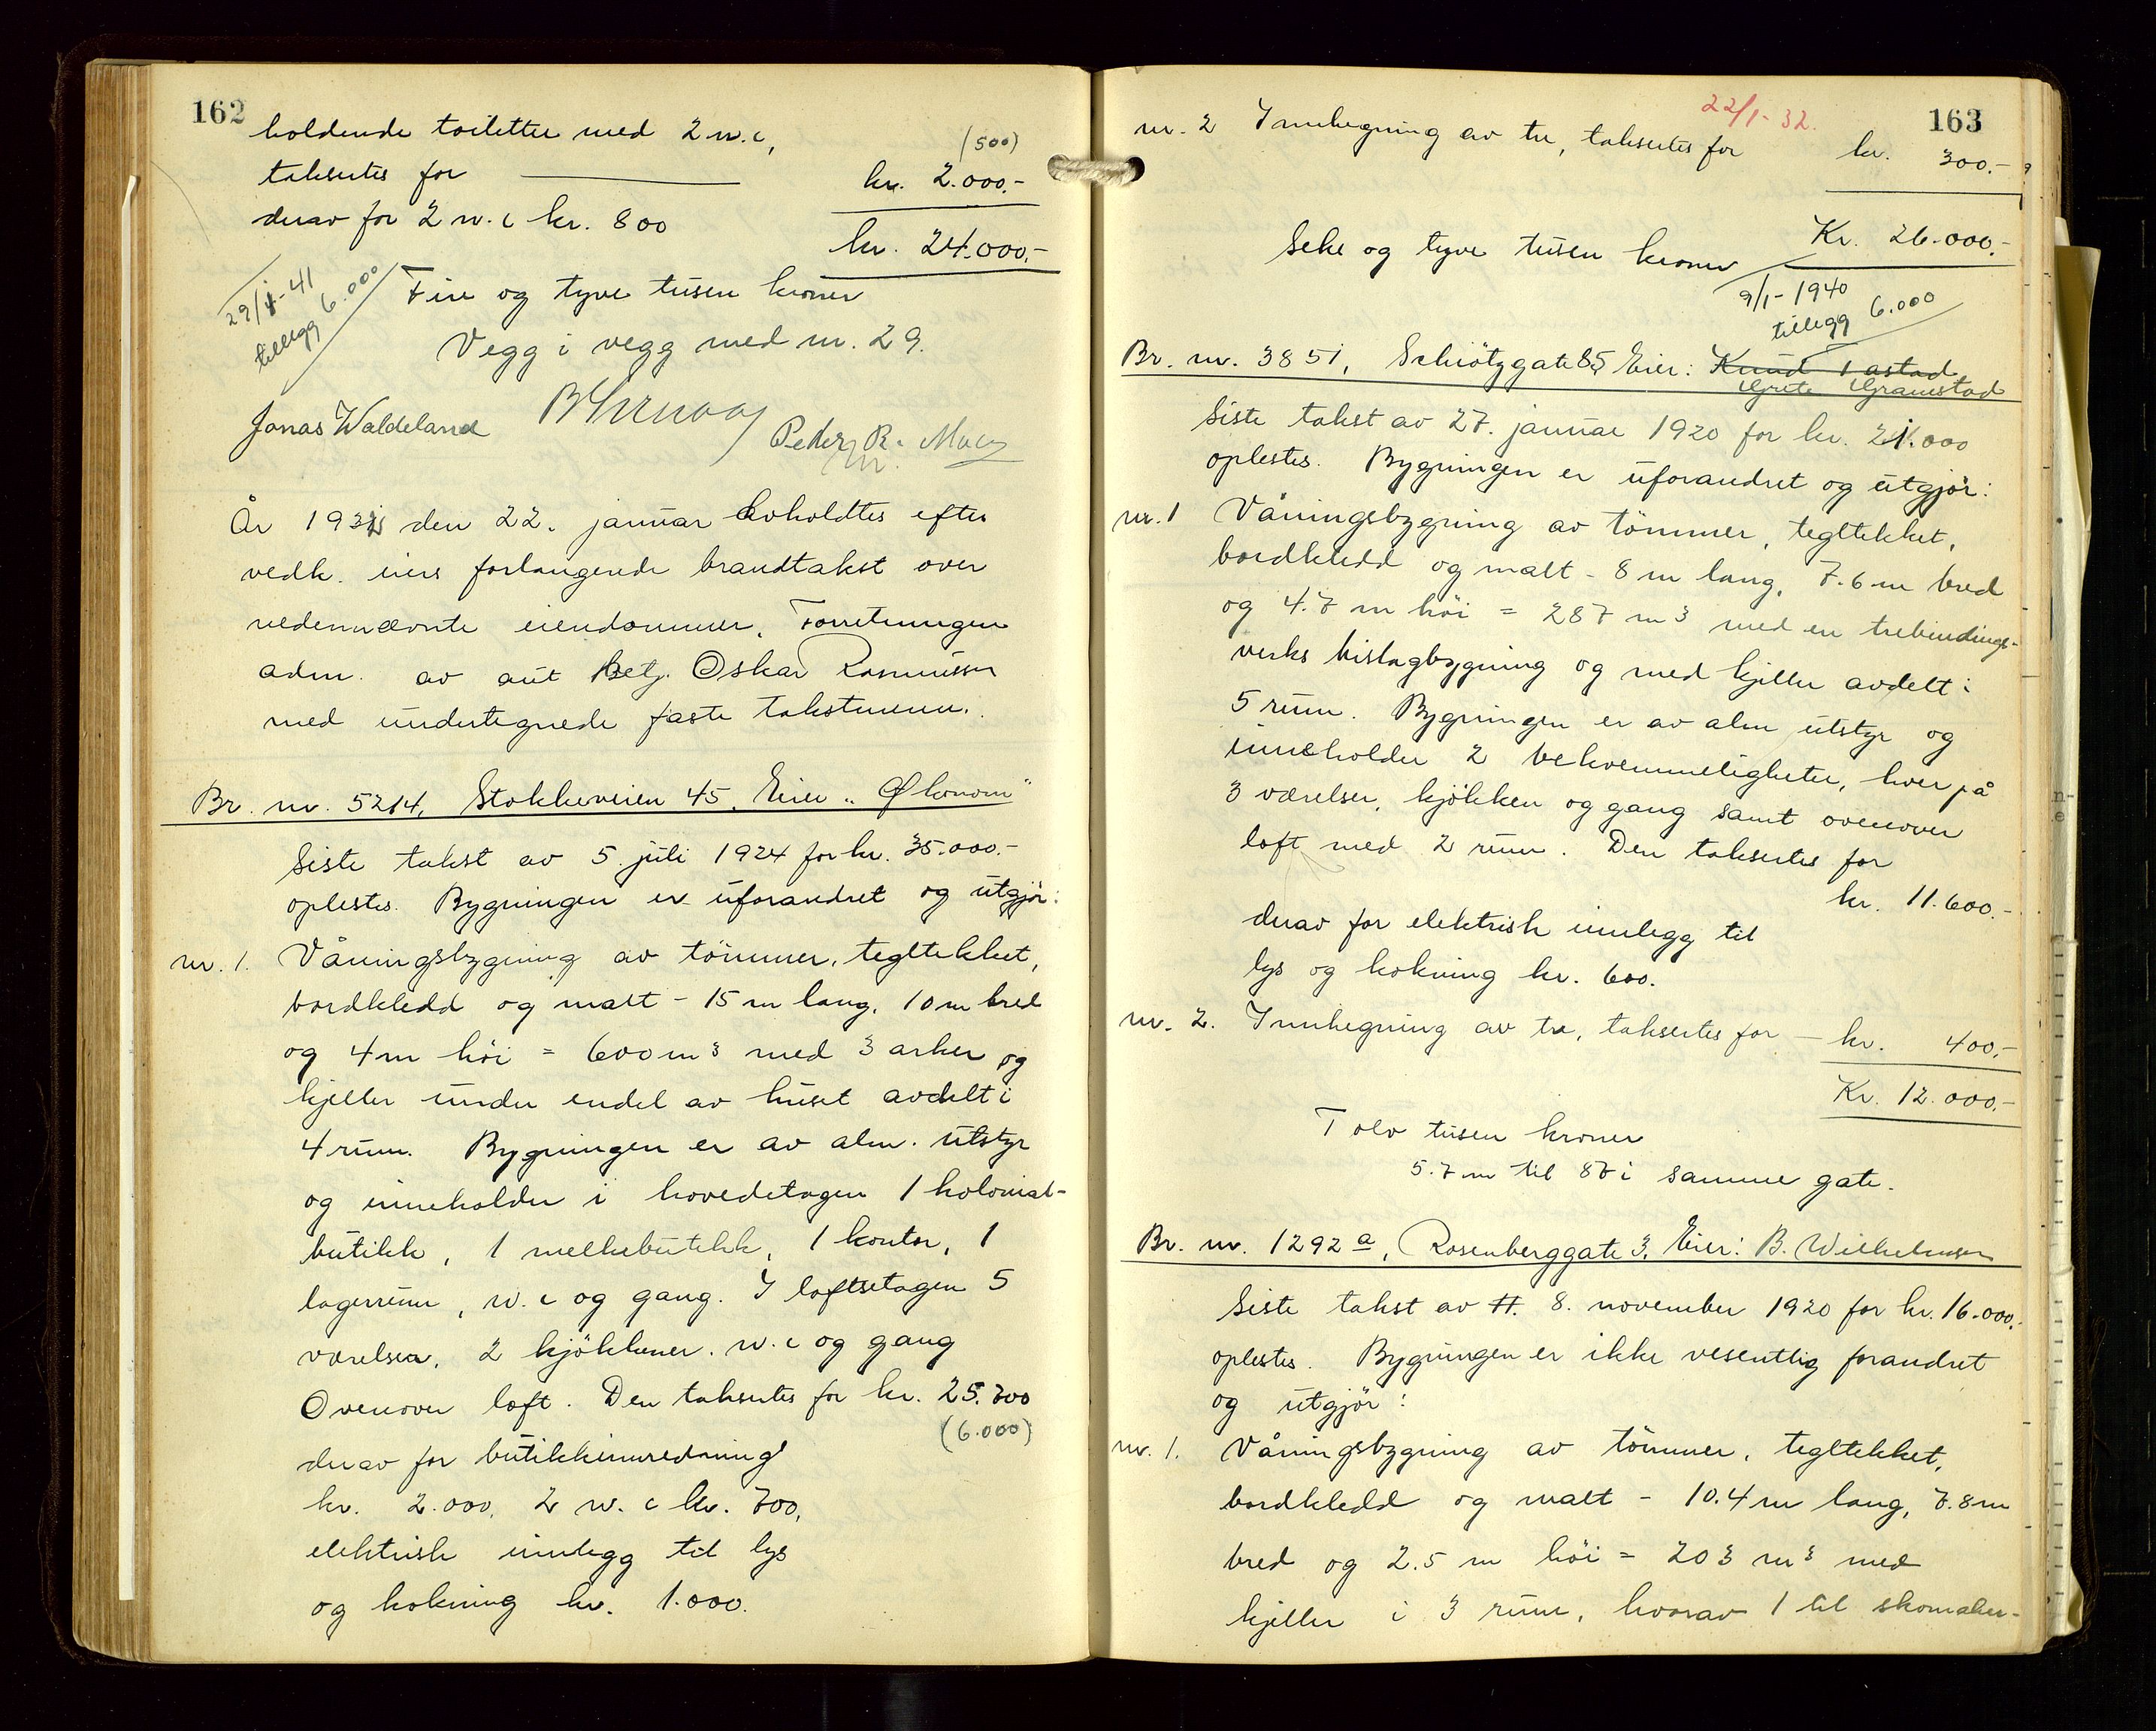 162
holdende toiletter med 2 w.c,
(500)
takseres for kr. 2.000.-
derav for 2 w.c kr. 800
kr. 24.000.-
29/1-41
tillegg 6.000
Fire og tyve tusen kroner
Vegg i vegg med nr. 29.
Jonas Waldeland
Peder R. Moen
År 1932 den 22. januar avholdtes efter
vedk. eiers forlangende brandtakst over
nedennævnte eiendommer. Forretningen
adm. av aut betj. Oskar Rasmussen
med undertegnede faste takstmenn.
Br. nr. 5214, Stokkeveien 45. Eier "Økonom"
Siste takst av 5. juli 1924 for kr. 35.000.-
oplestes. Bygningen er uforandret og utgjør:
nr. 1. Våningsbygning av tömmer, tegltekket,
bordkledd og malt - 15 m lang, 10 m bred
og 4 m höi = 600 m3 med 3 arker og
kjeller under endel av huset avdelt i
4 rum. Bygningen er av alm. utstyr
og inneholder i hovedetagen 1 kolonial-
butikk, 1 melkebutikk, 1 kontor, 1
lagerrum, w.c og gang. I loftsetagen 5
værelser, 2 kjökkener. w.c og gang
Ovenover loft. Den takseres for kr. 25.700
(6.000)
derav for butikkinnredning
kr. 2.000, 2 w.c kr. 700,
elektrisk innlegg til lys
og kokning kr. 1.000.
22/1-32.
163
nr. 2 Innhegning av tre, takseres for kr. 300.-
Kr. 26.000.-
Seks og tyve tusen kroner
9/1-1940
tillegg 6.000
Br. nr. 3851, Schiötzgate 85 Eier: Knud
Grete Gramstad
Siste takst av 27. januar 1920 for kr. 21.000
oplestes. Bygningen er uforandret og utgjör:
nr. 1 Våningsbygning av tömmer, tegltekket,
bordkledd og malt - 8 m lang, 7.6 m bred
og 4.7 m höi = 287 m3 med en trebindings-
verks bislagbygning og med kjeller avdelt i
5 rum. Bygningen er av alm utstyr og
inneholder 2 bekvemmeligheter, hver på
3 værelser, kjökken og gang samt ovenover
loft med 2 rum. Den takseres for
kr. 11.600.-
derav for elektrisk innlegg til
lys og kokning kr. 600.
nr. 2. Innhegning av tre, takseres for - kr. 400.-
Kr. 12.000.-
Tolv tusen kroner
5.7 m til 87 i samme gate.
Br. nr. 1292 a, Rosenberggate 3. Eier: B. Wilhelmsen
Siste takst av 8. november 1920 for kr. 16.000.-
oplestes. Bygningen er ikke vesentlig forandret
og utgjör:
nr. 1. Våningsbygning av tömmer, tegltekket,
bordkledd og malt - 10.4 m lang, 7.8 m
bred og 2.5 m höi = 203 m3 med
kjeller i 3 rum, hvorav 1 til skomaker-